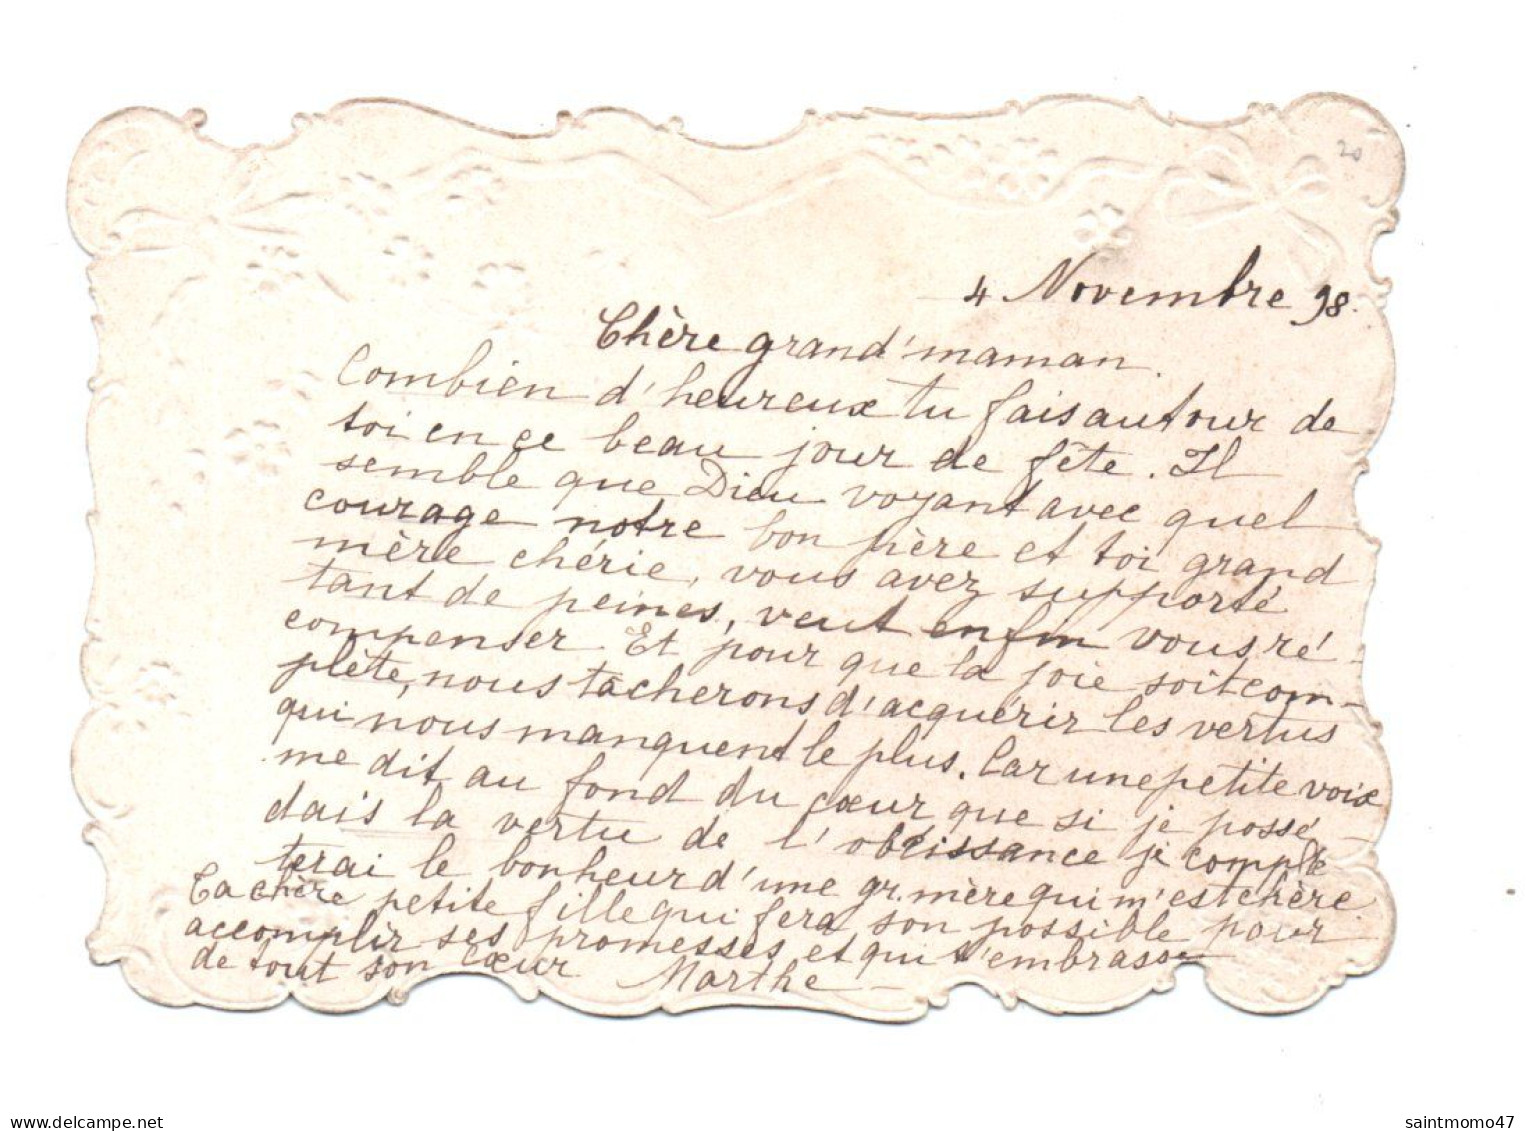 20
4 Novembre 98.
Chère grand'maman.
Combien d'heureux tu fais autour de
toi en ce beau jour de fête. Il
semble que Dieu voyant avec quel
courage notre bon père et toi grand
mère chérie, vous avez supporté
tant de peines, veut enfin vous ré-
compenser. Et pour que la joie soit com-
plète, nous tacherons d'acquérir les vertus
qui nous manquent le plus. Car une petite voix
me dit au fond du cœur que si je possé-
dais la vertu de l'obéissance je complè
terai le bonheur d'une gr. mère qui m'est chère.
Ta chère petite fille qui fera son possible pour
accomplir ses promesses et qui t'embrasse
de tout son cœur Marthe -
delcampe.net
saintmomo47